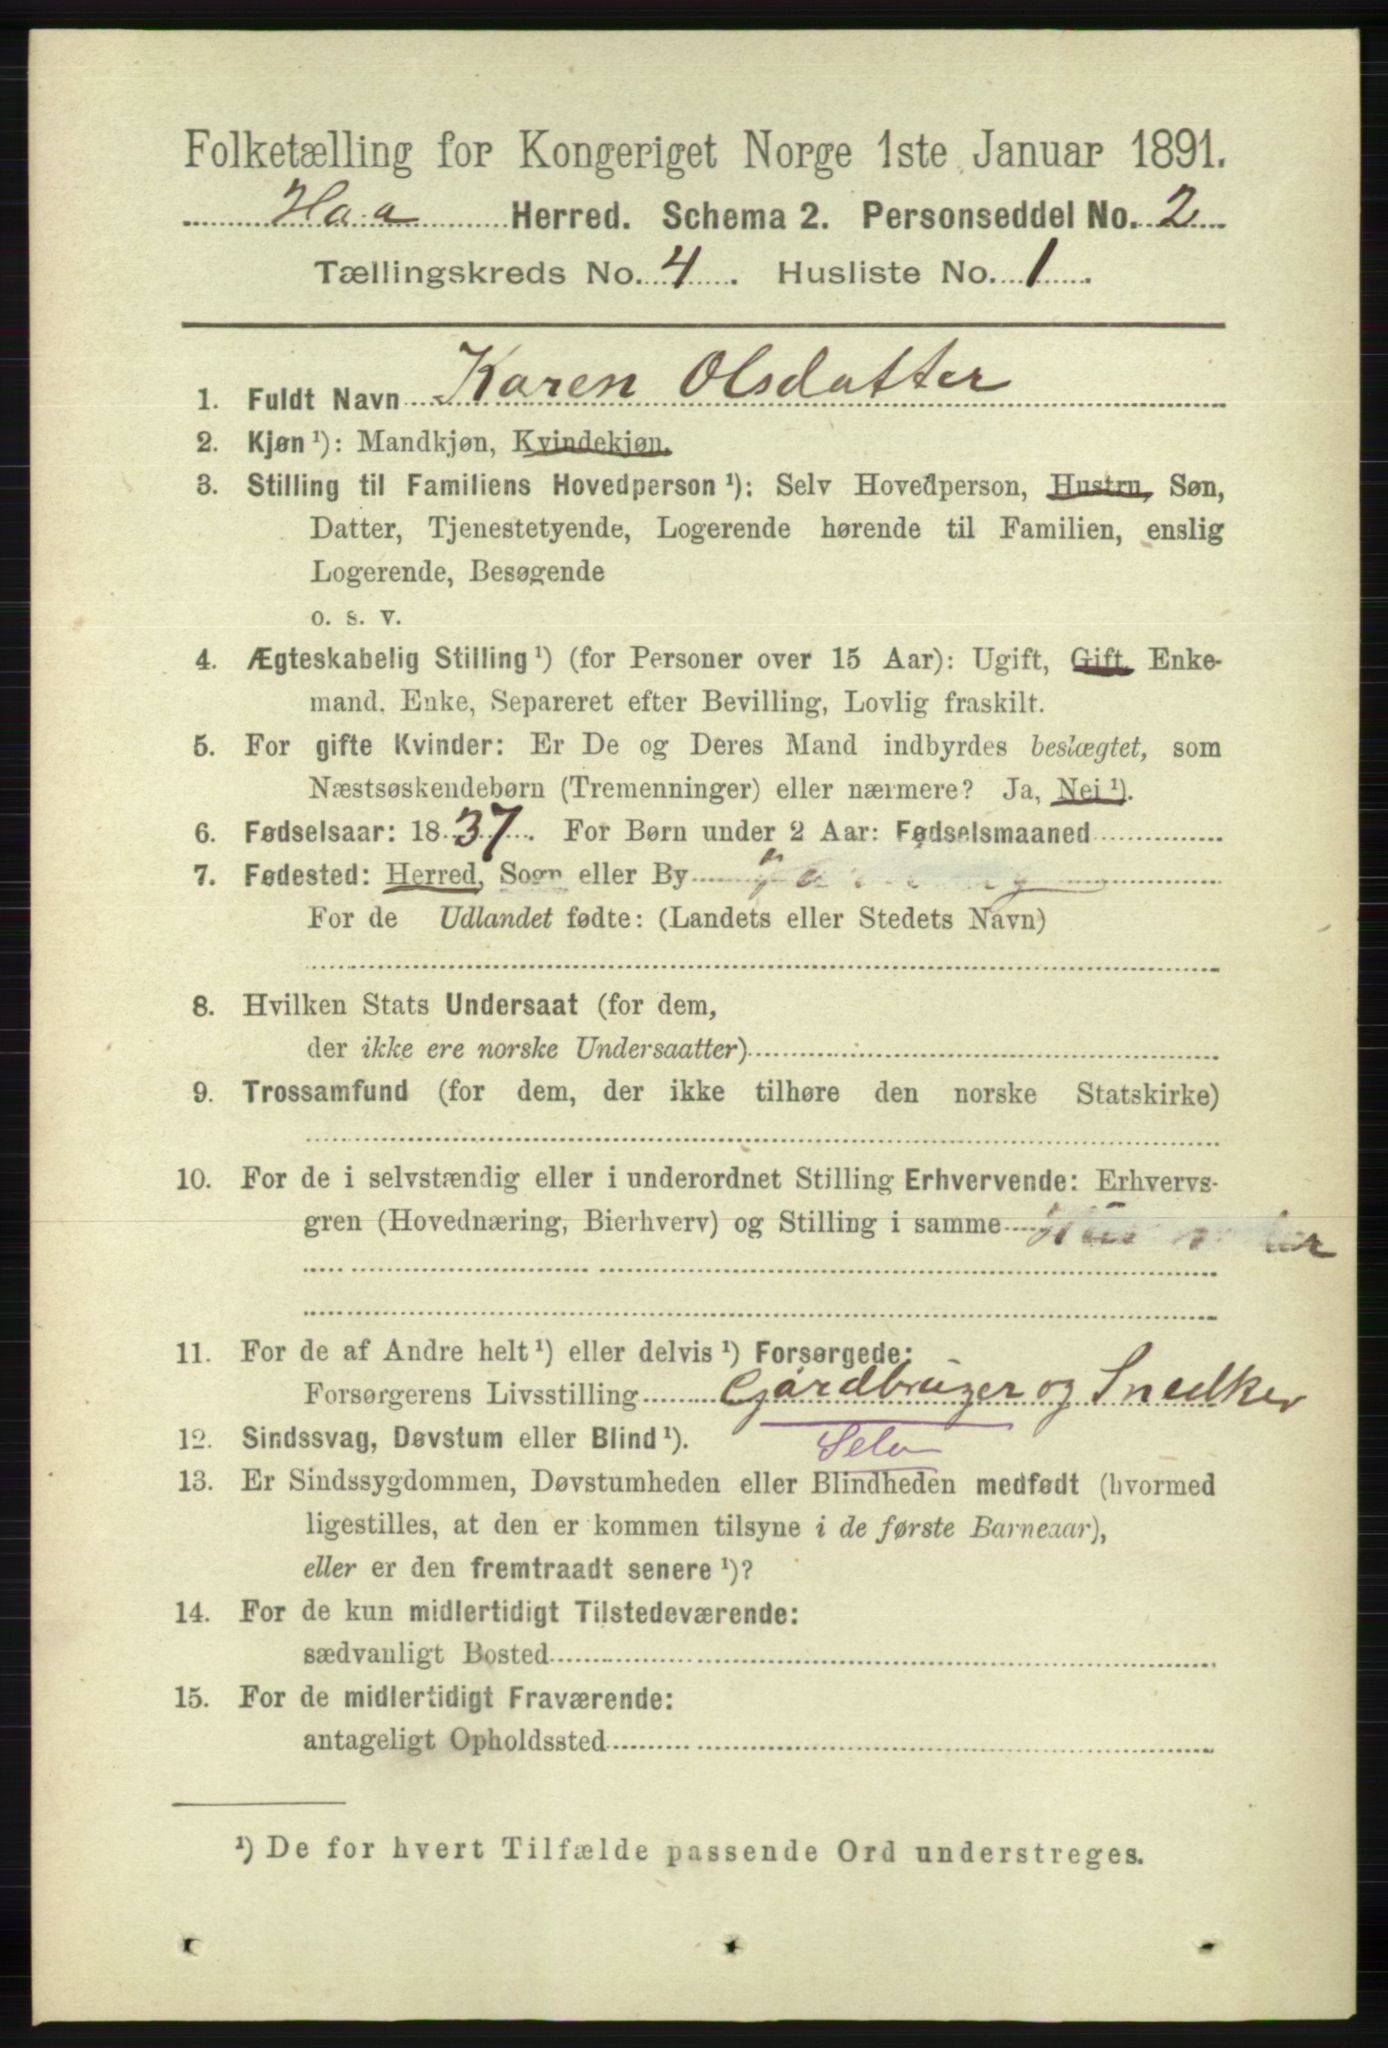 Folketælling for Kongeriget Norge 1ste Januar 1891.
Haa Herred. Schema 2. Personseddel No. 2
Tællingskreds No. 4. Husliste No. 1.
1. Fuldt Navn Karen Olsdatter
2. Kjøn¹): Mandkjøn, Kvindekjøn.
3. Stilling til Familiens Hovedperson¹): Selv Hovedperson, Hustru, Søn,
Datter, Tjenestetyende, Logerende hørende til Familien, enslig
Logerende, Besøgende
o. s. v.
4. Ægteskabelig Stilling¹) (for Personer over 15 Aar): Ugift, Gift, Enke-
mand, Enke, Separeret efter Bevilling, Lovlig fraskilt.
5. For gifte Kvinder: Er De og Deres Mand indbyrdes beslægtet, som
Næstsøskendebørn (Tremenninger) eller nærmere? Ja, Nei¹).
6. Fødselsaar: 1837. For Børn under 2 Aar: Fødselsmaaned
7. Fødested: Herred, Sogn eller By
For de Udlandet fødte: (Landets eller Stedets Navn)
8. Hvilken Stats Undersaat (for dem,
der ikke ere norske Undersaatter)
9. Trossamfund (for dem, der ikke tilhøre den norske Statskirke)
10. For de i selvstændig eller i underordnet Stilling Erhvervende: Erhvervs-
gren (Hovednæring, Bierhverv) og Stilling i samme
11. For de af Andre helt¹) eller delvis¹) Forsørgede:
Forsørgerens Livsstilling Gårdbruger og Snedker
12. Sindssvag, Døvstum eller Blind¹). Selv
13. Er Sindssygdommen, Døvstumheden eller Blindheden medfødt (hvormed
ligestilles, at den er kommen tilsyne i de første Barneaar),
eller er den fremtraadt senere¹)?
14. For de kun midlertidigt Tilstedeværende:
sædvanligt Bosted
15. For de midlertidigt Fraværende:
antageligt Opholdssted
¹) De for hvert Tilfælde passende Ord understreges.